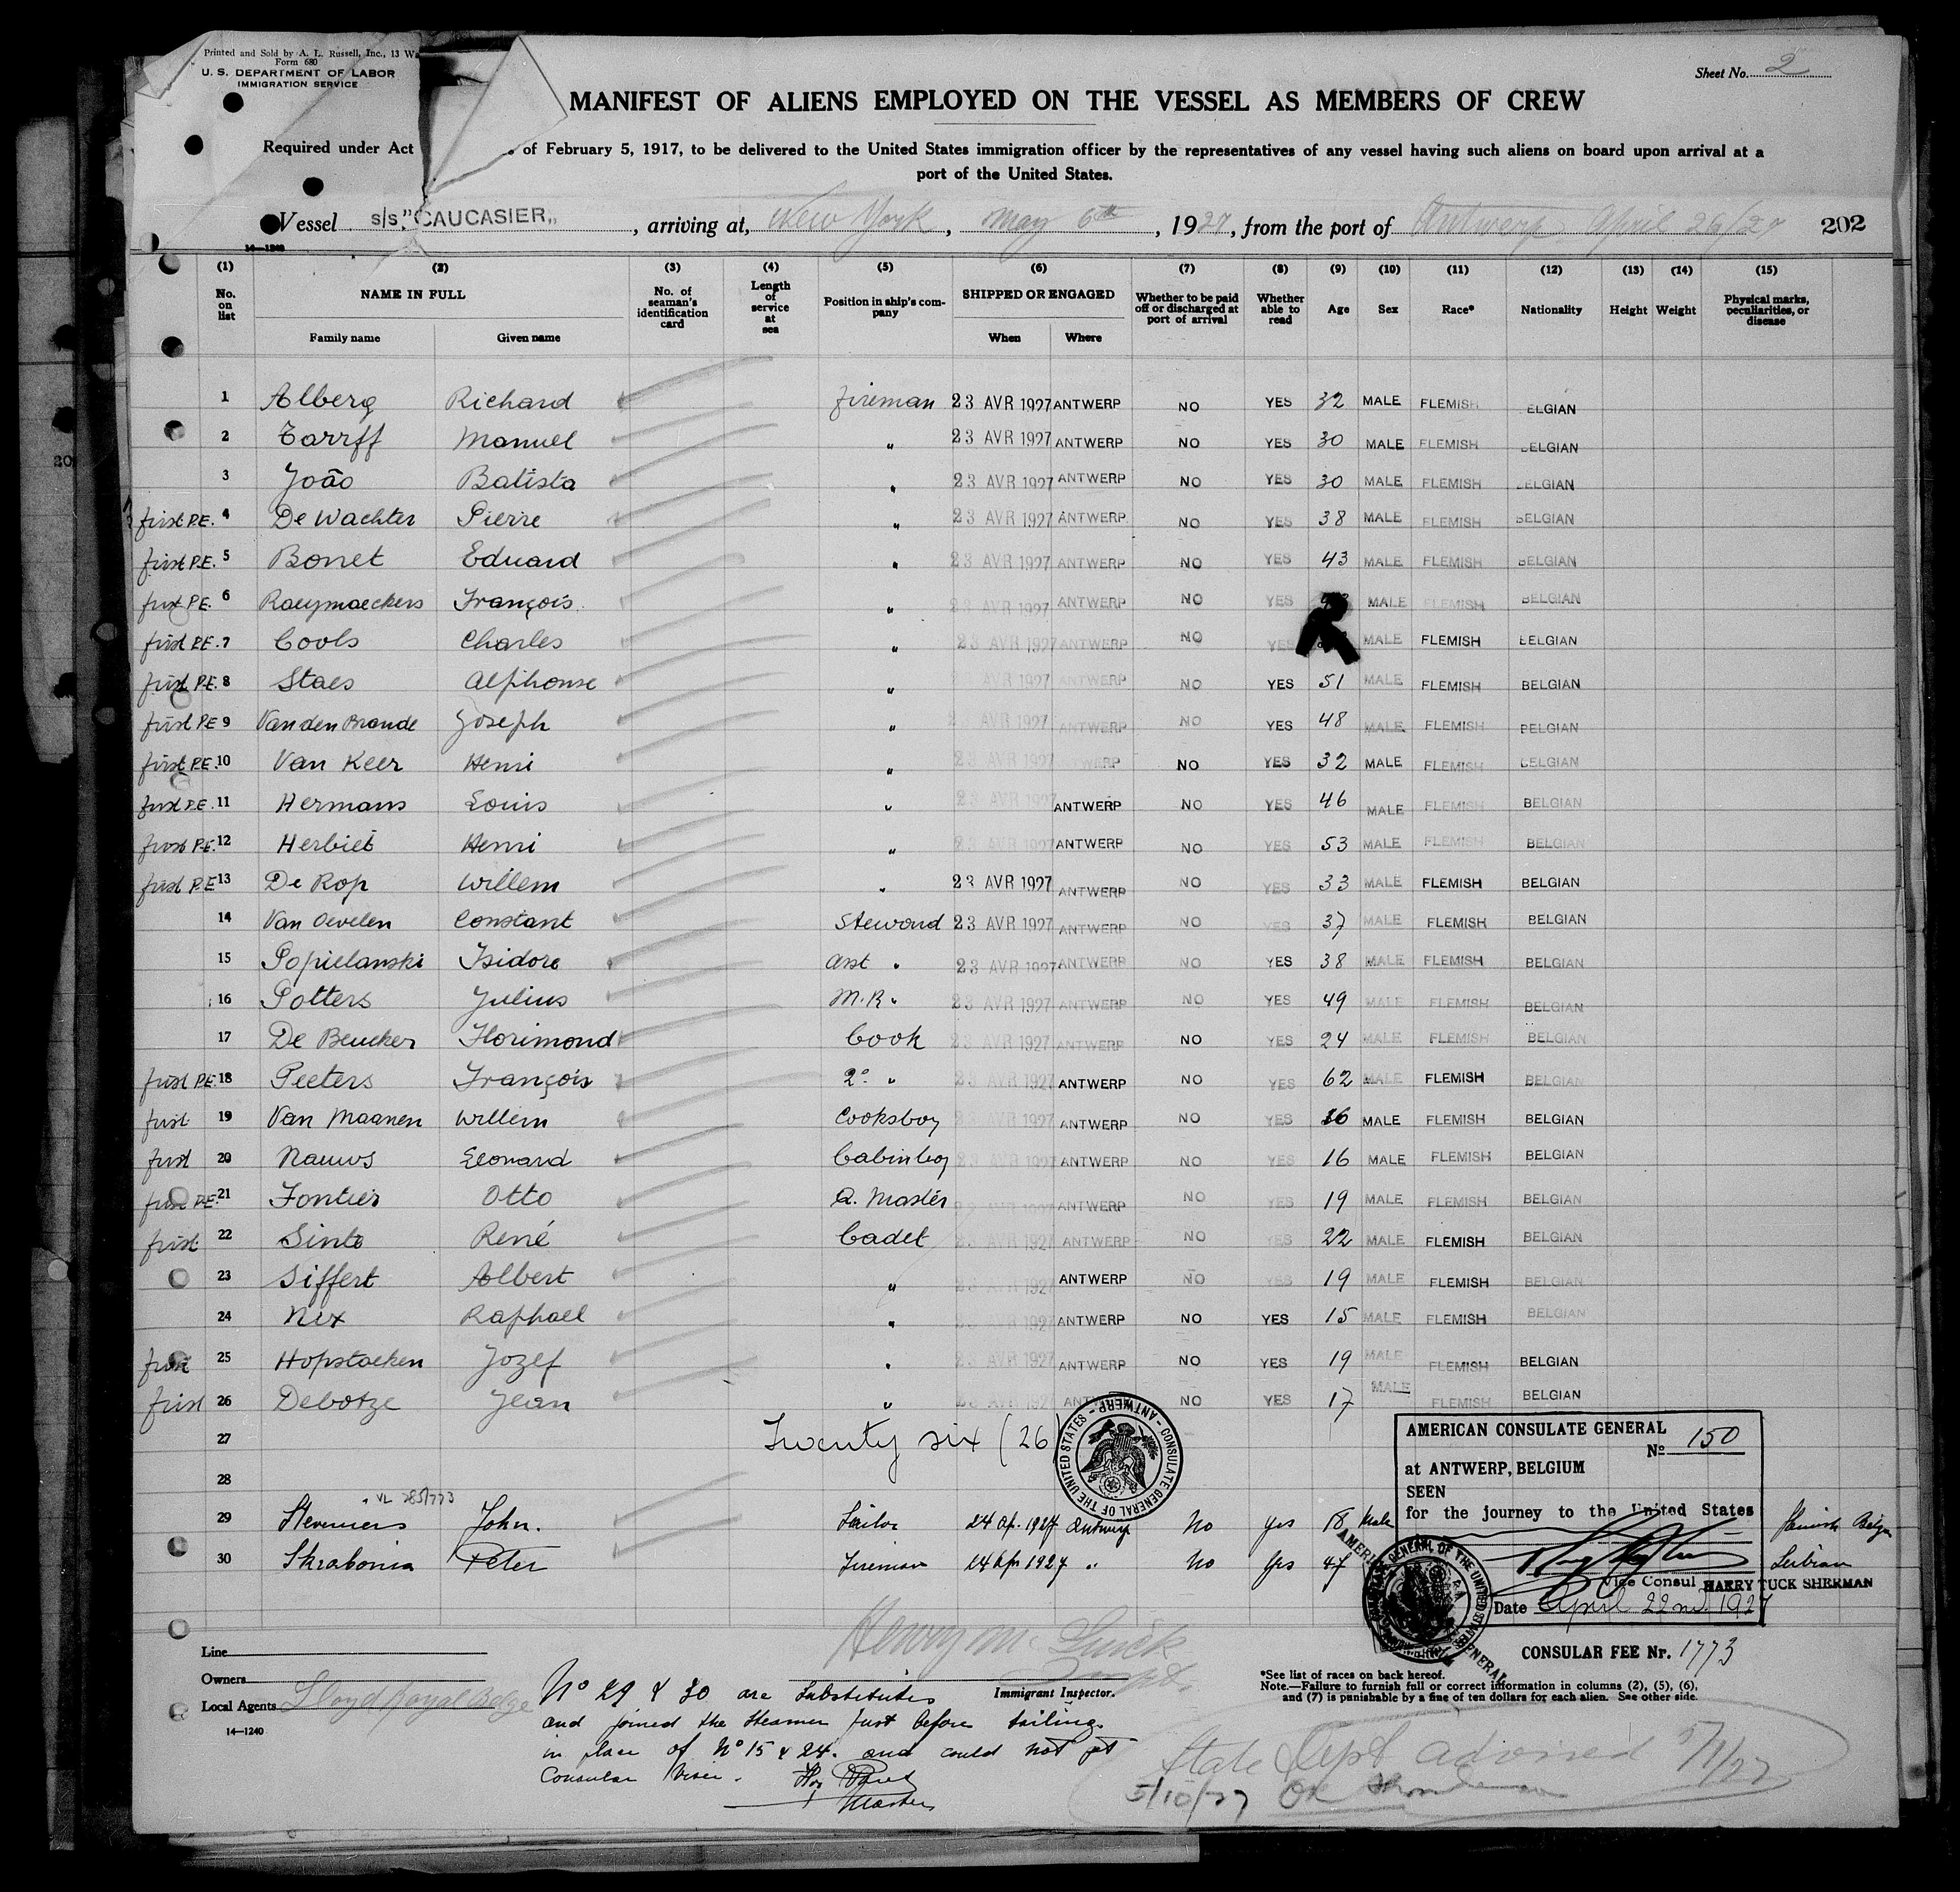 Printed and Sold by A. L. Russell, Inc., 13 Wa
Form 680
U. S. DEPARTMENT OF LABOR
IMMIGRATION SERVICE
Sheet No. 2
MANIFEST OF ALIENS EMPLOYED ON THE VESSEL AS MEMBERS OF CREW
Required under Act of February 5, 1917, to be delivered to the United States immigration officer by the representatives of any vessel having such aliens on board upon arrival at a
port of the United States.
Vessel s/s "CAUCASIER", arriving at, New York, May 6th, 1927, from the port of Antwerp April 24/27 202
14—1240
(1) (2) (3) (4) (5) (6) (7) (8) (9) (10) (11) (12) (13) (14) (15)
No. on list NAME IN FULL Family name Given name No. of seaman's identification card Length of service at sea Position in ship's company SHIPPED OR ENGAGED When Where Whether to be paid off or discharged at port of arrival Whether able to read Age Sex Race* Nationality Height Weight Physical marks, peculiarities, or disease
1 Alberg Richard fireman 23 AVR 1927 ANTWERP NO YES 32 MALE FLEMISH ELGIAN
2 Tarrff Manuel " 23 AVR 1927 ANTWERP NO YES 30 MALE FLEMISH BELGIAN
3 João Batista " 23 AVR 1927 ANTWERP NO YES 30 MALE FLEMISH BELGIAN
first P.E. 4 De Wachter Pierre " 23 AVR 1927 ANTWERP NO YES 38 MALE FLEMISH BELGIAN
first P.E. 5 Bonet Eduard " 23 AVR 1927 ANTWERP NO YES 43 MALE FLEMISH BELGIAN
first P.E. 6 Raeymaeckers François " 23 AVR 1927 ANTWERP NO YES MALE FLEMISH BELGIAN
first P.E. 7 Cools Charles " 23 AVR 1927 ANTWERP NO YES MALE FLEMISH BELGIAN
first P.E. 8 Staes Alphonse " 23 AVR 1927 ANTWERP NO YES 51 MALE FLEMISH BELGIAN
first P.E 9 Van den Brande Joseph " 23 AVR 1927 ANTWERP NO YES 48 MALE FLEMISH BELGIAN
first P.E. 10 Van Keer Henri " 23 AVR 1927 ANTWERP NO YES 32 MALE FLEMISH BELGIAN
first P.E. 11 Hermans Louis " 23 AVR 1927 ANTWERP NO YES 46 MALE FLEMISH BELGIAN
first P.E. 12 Herbiet Henri " 23 AVR 1927 ANTWERP NO YES 53 MALE FLEMISH BELGIAN
first P.E 13 De Rop Willem " 23 AVR 1927 ANTWERP NO YES 33 MALE FLEMISH BELGIAN
14 Van Oevelen Constant Steward 23 AVR 1927 ANTWERP NO YES 37 MALE FLEMISH BELGIAN
15 Popielanski Isidore Asst " 23 AVR 1927 ANTWERP NO YES 38 MALE FLEMISH BELGIAN
16 Potters Julius M.R " 23 AVR 1927 ANTWERP NO YES 49 MALE FLEMISH BELGIAN
17 De Beucker Florimond Cook 23 AVR 1927 ANTWERP NO YES 24 MALE FLEMISH BELGIAN
first P.E. 18 Peeters François 2° " 23 AVR 1927 ANTWERP NO YES 62 MALE FLEMISH BELGIAN
first 19 Van Maanen Willem Cooksboy 23 AVR 1927 ANTWERP NO YES 16 MALE FLEMISH BELGIAN
first 20 Nauws Leonard Cabinboy 23 AVR 1927 ANTWERP NO YES 16 MALE FLEMISH BELGIAN
first P.E. 21 Fontier Otto Q. Master 23 AVR 1927 ANTWERP NO YES 19 MALE FLEMISH BELGIAN
first 22 Sinte René Cadet 23 AVR 1927 ANTWERP NO YES 22 MALE FLEMISH BELGIAN
23 Siffert Albert " 23 AVR 1927 ANTWERP NO YES 19 MALE FLEMISH BELGIAN
24 Nix Raphael " 23 AVR 1927 ANTWERP NO YES 15 MALE FLEMISH BELGIAN
first 25 Hopstaeken Jozef " 23 AVR 1927 ANTWERP NO YES 19 MALE FLEMISH BELGIAN
first 26 Debotze Jean " 23 AVR 1927 ANTWERP NO YES 17 MALE FLEMISH BELGIAN
27 Twenty six (26)
28
29 Steveniers John. Sailor 24 Ap. 1927 Antwerp No Yes 18 Male Flemish Belgn
30 Skrabonia Peter Fireman 24 Apr 1927 " No Yes 47 Serbian
CONSULATE GENERAL OF THE UNITED STATES - ANTWERP -
AMERICAN CONSULATE GENERAL
No 150
at ANTWERP, BELGIUM
SEEN
for the journey to the United States
Vice Consul HARRY TUCK SHERMAN
Date April 22nd. 1927
CONSULAR FEE Nr. 1773
Line
Owners
Local Agents Lloyd Royal Belge
14—1240
Immigrant Inspector.
*See list of races on back hereof.
Note.—Failure to furnish full or correct information in columns (2), (5), (6),
and (7) is punishable by a fine of ten dollars for each alien. See other side.
No 29 & 30 are Substitutes
and joined the Steamer just before sailing
in place of No 15 & 24. and could not get
Consular Visa.
Master
State Dept advised 5/11/27
5/10/27 OK